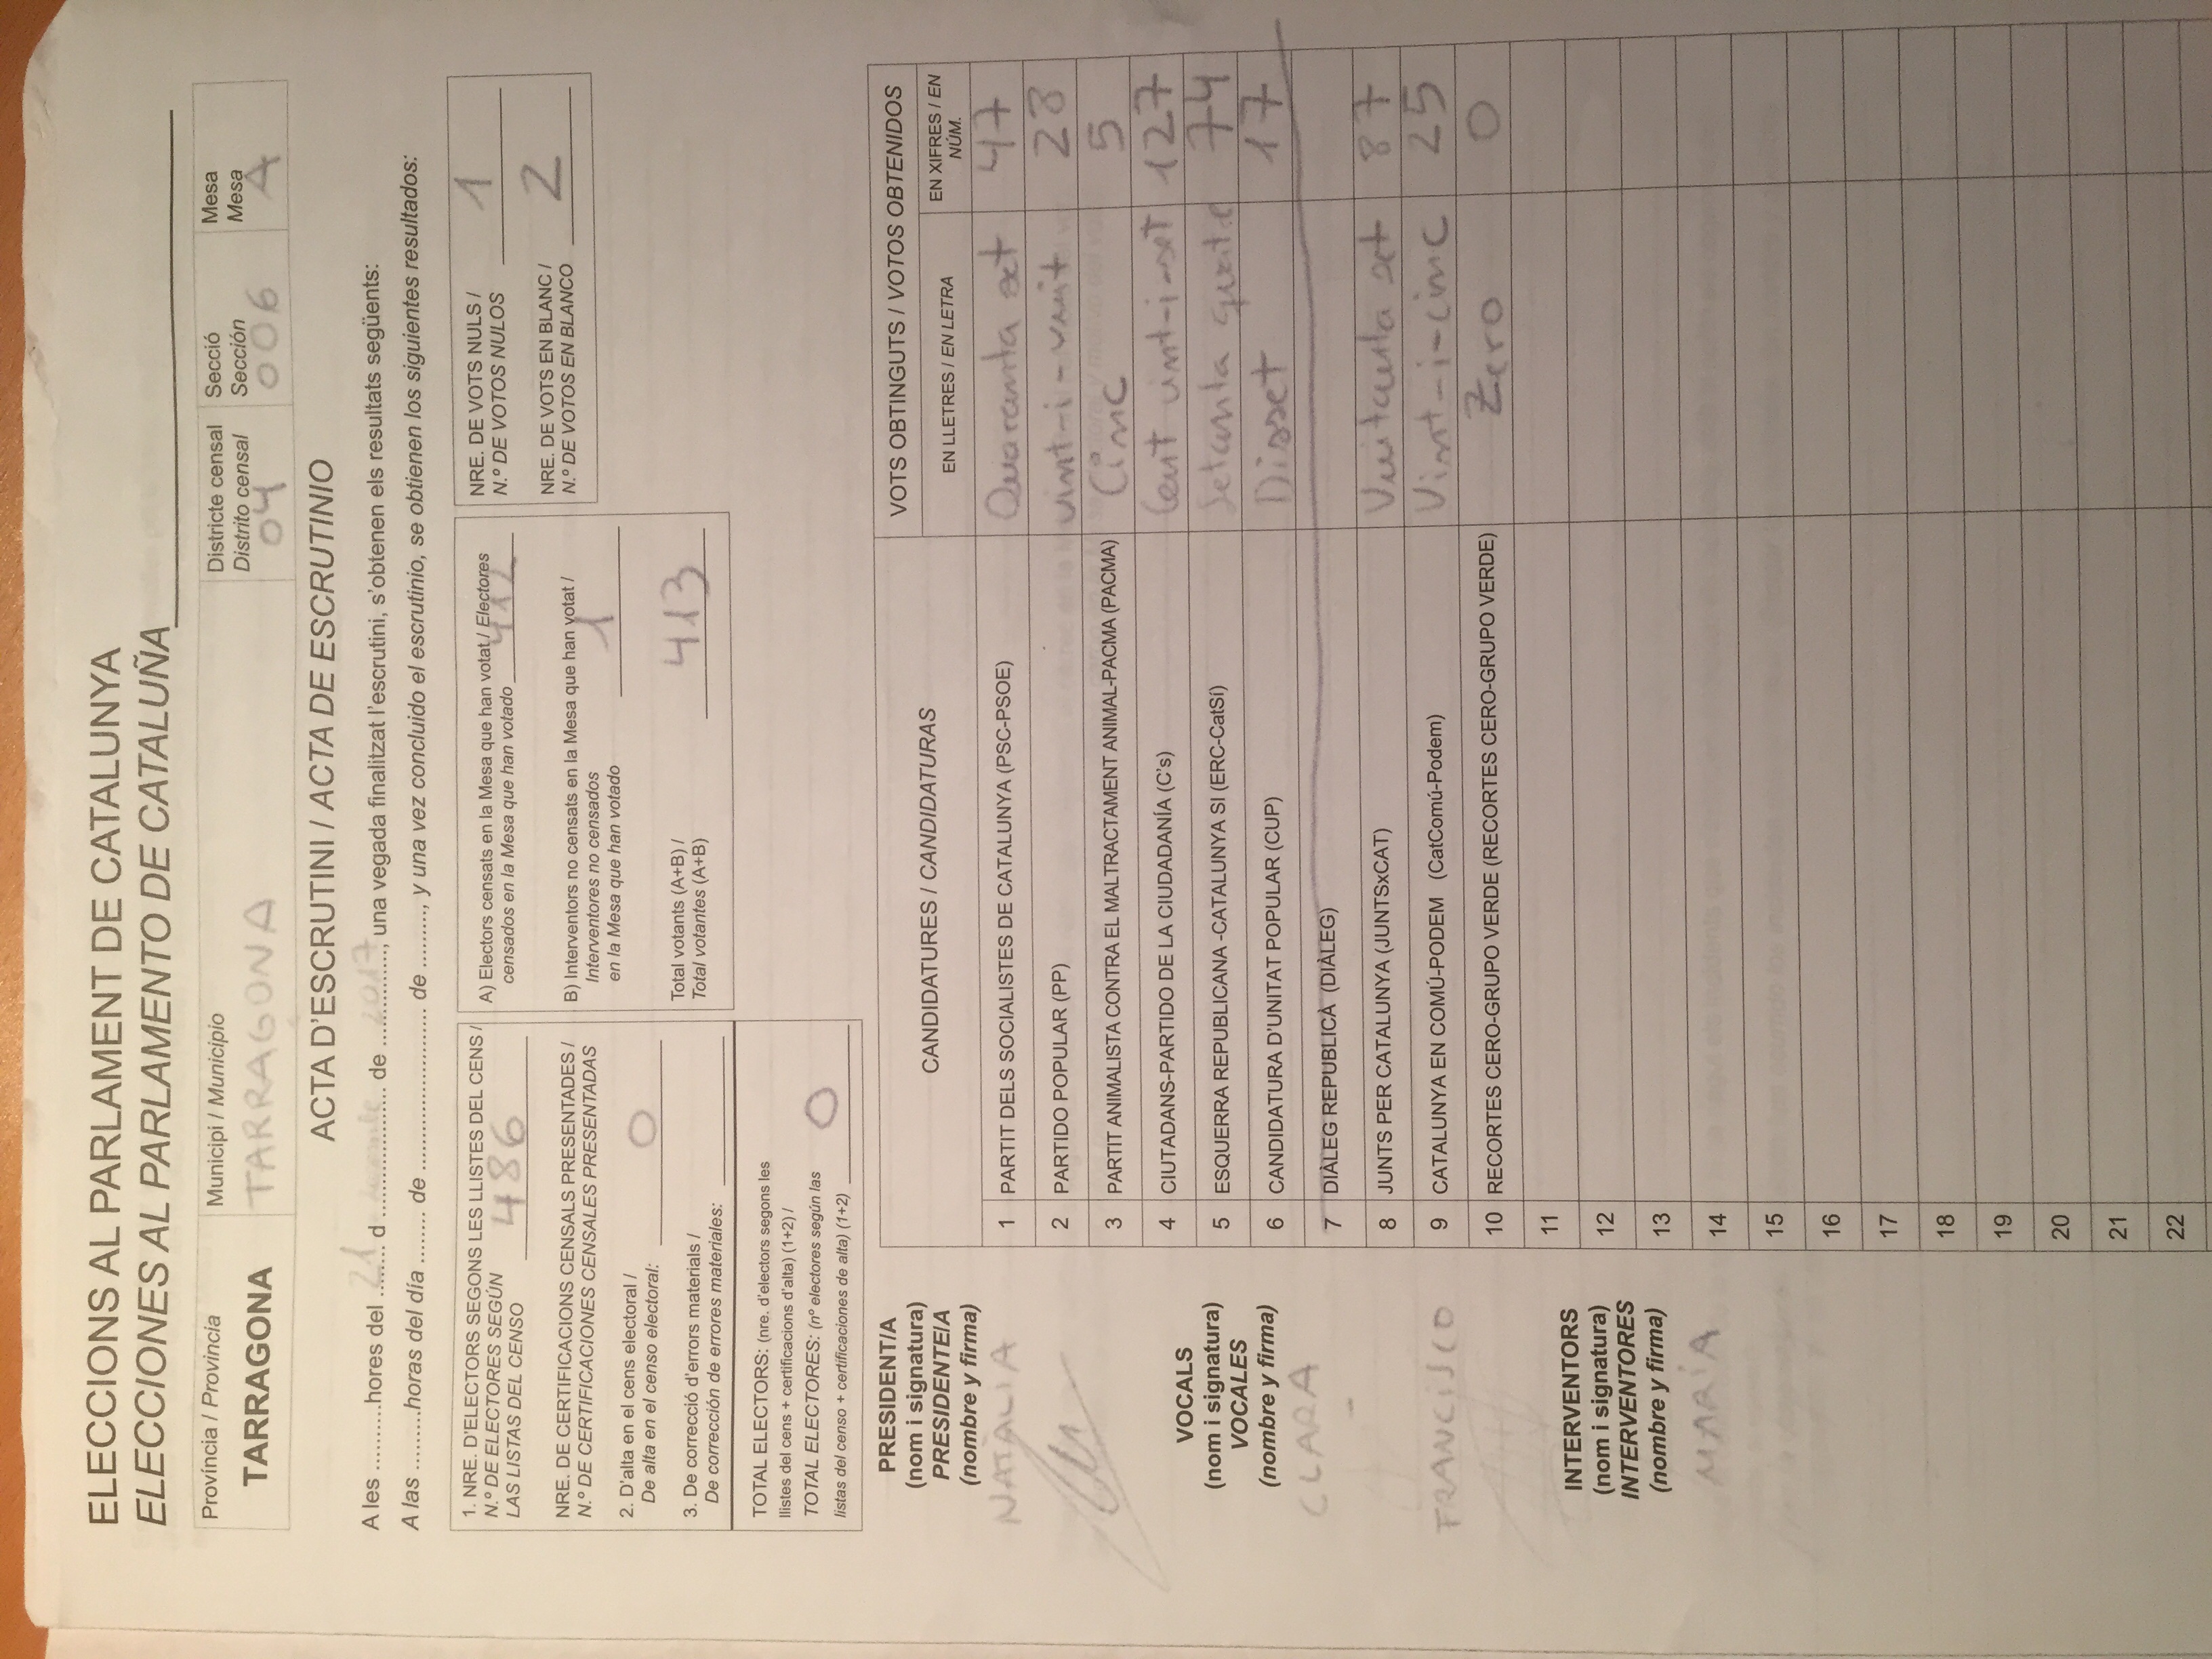 ELECCIONS AL PARLAMENT DE CATALUNYA
ELECCIONES AL PARLAMENTO DE CATALUÑA
Província / Provincia
TARRAGONA
Municipi / Municipio
TARRAGONA
Districte censal
Distrito censal
04
Secció
Sección
006
Mesa
Mesa
A
ACTA D'ESCRUTINI / ACTA DE ESCRUTINIO
A les ..........hores del 21 d ...................... de 2017, una vegada finalitzat l'escrutini, s'obtenen els resultats següents:
A las .........horas del día ........ de ......................... de ........., y una vez concluido el escrutinio, se obtienen los siguientes resultados:
1. NRE. D'ELECTORS SEGONS LES LLISTES DEL CENS /
N.º DE ELECTORES SEGÚN
LAS LISTAS DEL CENSO 486
NRE. DE CERTIFICACIONS CENSALS PRESENTADES /
N.º DE CERTIFICACIONES CENSALES PRESENTADAS
2. D'alta en el cens electoral /
De alta en el censo electoral: 0
3. De correcció d'errors materials /
De corrección de errores materiales:
TOTAL ELECTORS: (nre. d'electors segons les
llistes del cens + certificacions d'alta) (1+2) /
TOTAL ELECTORES: (nº electores según las
listas del censo + certificaciones de alta) (1+2) 0
A) Electors censats en la Mesa que han votat / Electores
censados en la Mesa que han votado 412
B) Interventors no censats en la Mesa que han votat /
Interventores no censados
en la Mesa que han votado 1
Total votants (A+B) /
Total votantes (A+B) 413
NRE. DE VOTS NULS /
N.º DE VOTOS NULOS 1
NRE. DE VOTS EN BLANC /
N.º DE VOTOS EN BLANCO 2
PRESIDENT/A
(nom i signatura)
PRESIDENTE/A
(nombre y firma)
NATÀLIA
VOCALS
(nom i signatura)
VOCALES
(nombre y firma)
CLARA
FRANCISCO
INTERVENTORS
(nom i signatura)
INTERVENTORES
(nombre y firma)
MARÍA
CANDIDATURES / CANDIDATURAS
VOTS OBTINGUTS / VOTOS OBTENIDOS
EN LLETRES / EN LETRA
EN XIFRES / EN
NÚM.
1 PARTIT DELS SOCIALISTES DE CATALUNYA (PSC-PSOE) Quaranta set 47
2 PARTIDO POPULAR (PP) vint-i-vuit 28
3 PARTIT ANIMALISTA CONTRA EL MALTRACTAMENT ANIMAL-PACMA (PACMA) Cinc 5
4 CIUTADANS-PARTIDO DE LA CIUDADANÍA (C's) Cent vint-i-set 127
5 ESQUERRA REPUBLICANA -CATALUNYA SI (ERC-CatSí) Setanta quatre 74
6 CANDIDATURA D'UNITAT POPULAR (CUP) Disset 17
7 DIÀLEG REPUBLICÀ (DIÀLEG)
8 JUNTS PER CATALUNYA (JUNTSxCAT) Vuitanta set 87
9 CATALUNYA EN COMÚ-PODEM (CatComú-Podem) Vint-i-cinc 25
10 RECORTES CERO-GRUPO VERDE (RECORTES CERO-GRUPO VERDE) Zero 0
11
12
13
14
15
16
17
18
19
20
21
22